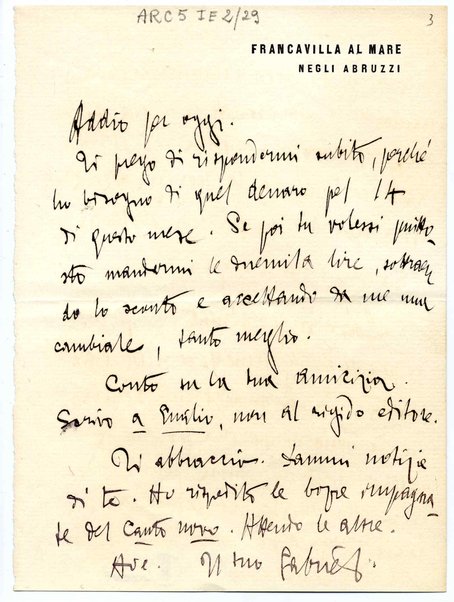 ARC 5 IE 2/29
3
FRANCAVILLA AL MARE
NEGLI ABRUZZI
Addio per oggi.
Ti prego di rispondermi subito, perché
ho bisogno di quel denaro pel 14
di questo mese. Se poi tu volessi piutto-
sto mandarmi le duemila lire, sottraen-
do lo sconto e accettando da me una
cambiale, tanto meglio.
Conto su la tua amicizia.
Scrivo a Emilio, non al rigido editore.
Ti abbraccio. Dammi notizie
di te. Ho rispedito le bozze impagina-
te del Canto novo. Attendo le altre.
Ave. Il tuo Gabriele